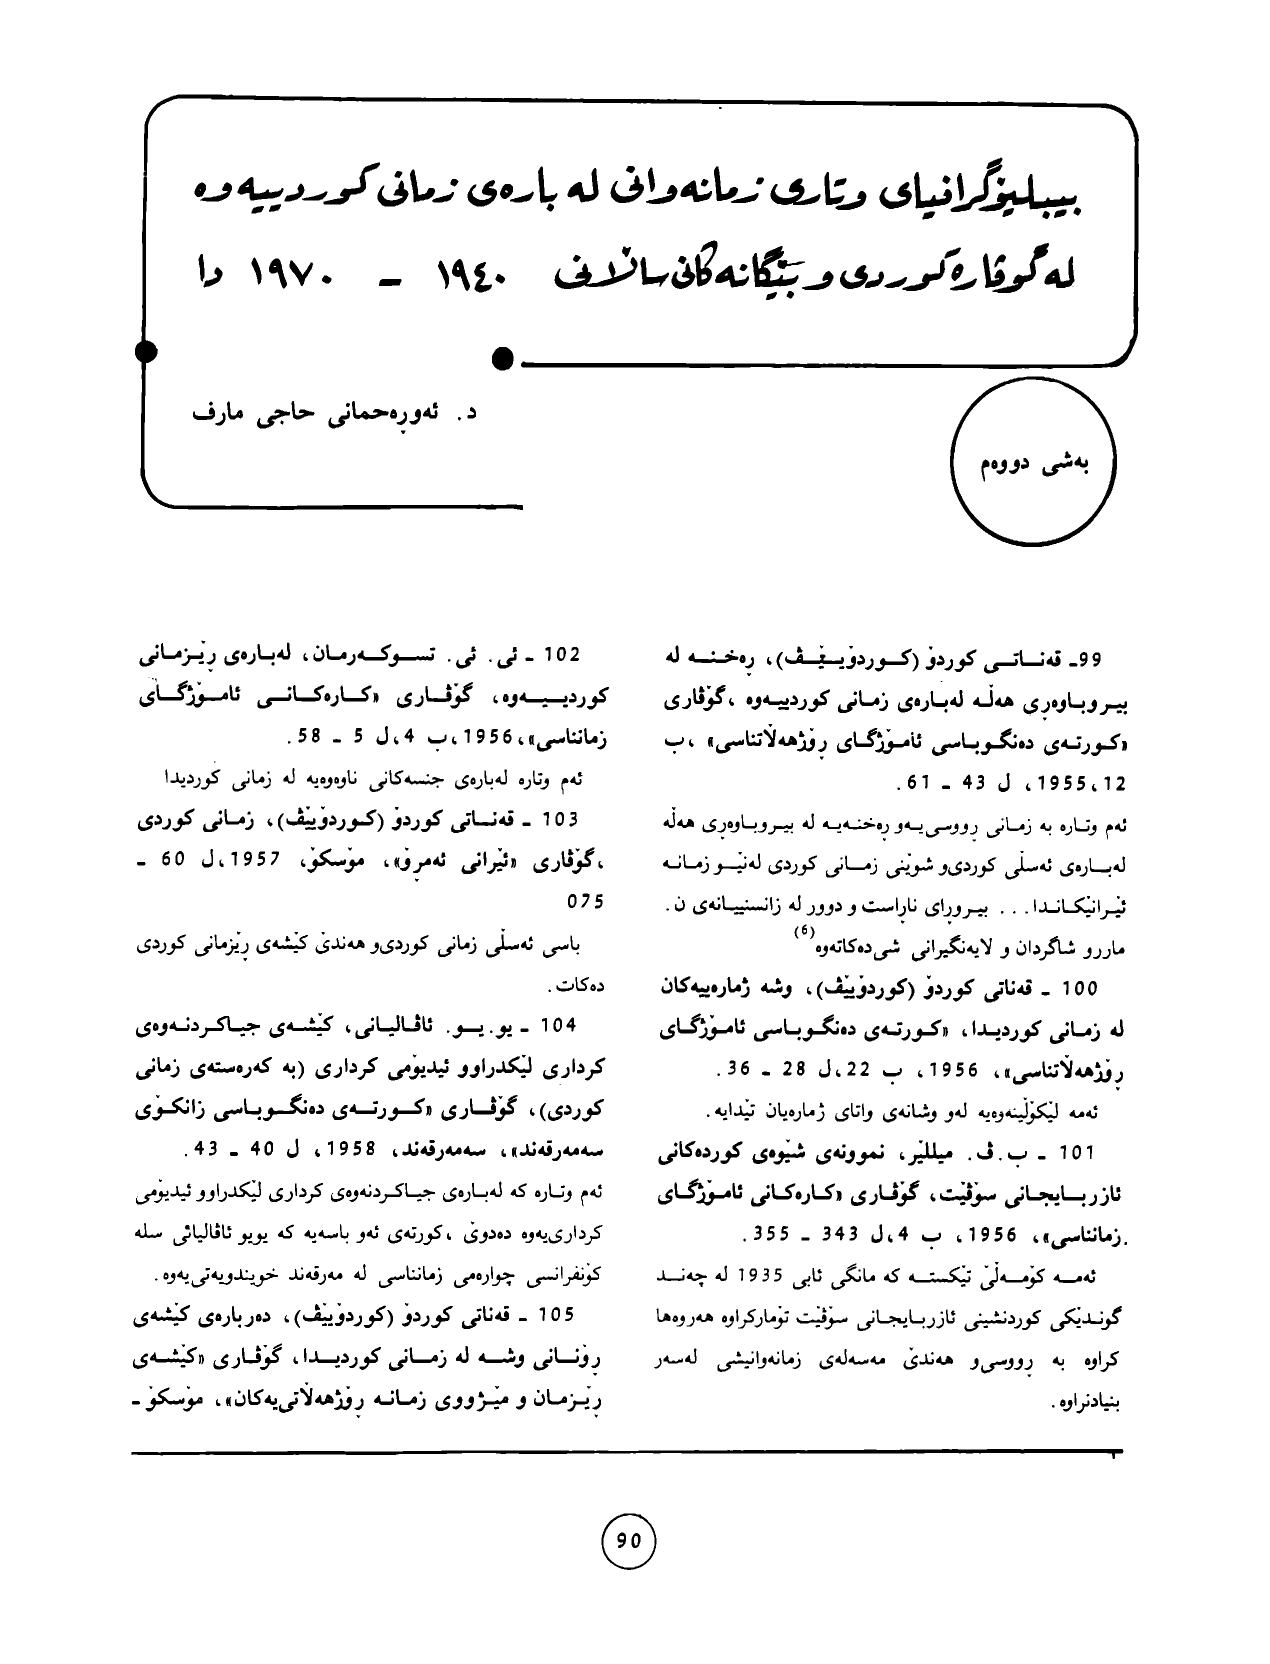 بیبلیۆگرافیای وتاری زمانەوانی لە بارەی زمانی کوردییەوە
لە گۆڤارە کوردی و بێگانەکانی ساڵانی ١٩٤٠ - ١٩٧٠ دا
د. ئەوڕەحمانی حاجی مارف
بەشی دووەم
99- قەناتی کوردۆ (کوردۆیێڤ)، ڕەخنە لە
بیروباوەڕی هەڵە لەبارەی زمانی کوردییەوە ،گۆڤاری
«کورتەی دەنگوباسی ئامۆژگای ڕۆژهەڵاتناسی» ،ب
12،1955، ل 43 - 61.
ئەم وتارە بە زمانی رووسی‌یەو ڕەخنەیە لە بیروباوەڕی هەڵە
لەبارەی ئەسڵی کوردی‌و شوێنی زمانی کوردی لەنێو زمانە
ئیرانێکاندا... بیرورای ناڕاست و دوور لە زانستییانەی ن.
ماررو شاگردان و لایەنگیرانی شی‌دەکاتەوە(6)
100 - قەناتی کوردۆ (کوردۆیێڤ)، وشە ژمارەییەکان
لە زمانی کوردیدا، «کورتەی دەنگوباسی ئامۆژگای
ڕۆژهەڵاتناسی»، 1956، ب 22،ل 28 - 36.
ئەمە لێکۆڵینەوەیە لەو وشانەی واتای ژمارەیان تێدایە.
101 - ب.ڤ. میللێر، نموونەی شێوەی کوردەکانی
ئازربایجانی سوڤێت، گۆڤاری «کارەکانی ئامۆژگای
زمانناسی»، 1956، ب 4،ل 343 - 355.
ئەمە کۆمەڵێ تێکستە کە مانگی ئابی 1935 لە چەند
گوندێکی کوردنشینی ئازربایجانی سوڤێت تۆمارکراوە هەروەها
کراوە بە ڕووسی‌و هەندێ مەسەلەی زمانەوانیشی لەسەر
بنیادنراوە.
102 - ئی. ئی. تسوکەرمان، لەبارەی ڕێزمانی
کوردییەوە، گۆڤاری «کارەکانی ئامۆژگای
زمانناسی»،1956،ب 4،ل 5 - 58.
ئەم وتارە لەبارەی جنسەکانی ناوەوەیە لە زمانی کوردیدا
103 - قەناتی کوردۆ (کوردۆیێڤ)، زمانی کوردی
،گۆڤاری «ئێرانی ئەمڕۆ»، مۆسکۆ، 1957،ل 60 -
075
باسی ئەسڵی زمانی کوردی‌و هەندێ کێشەی ڕێزمانی کوردی
دەکات.
104 - یو.یو. ئاڤالیانی، کێشەی جیاکردنەوەی
کرداری لێکدراوو ئیدیۆمی کرداری (بە کەرەستەی زمانی
کوردی)، گۆڤاری «کورتەی دەنگوباسی زانکۆی
سەمەرقەند»، سەمەرقەند، 1958، ل 40 - 43.
ئەم وتارە کە لەبارەی جیاکردنەوەی کرداری لێکدراوو ئیدیۆمی
کرداری‌یەوە دەدوێ ،کورتەی ئەو باسەیە کە یویو ئاڤالیانی سلە
کۆنفرانسی چوارەمی زمانناسی لە مەرقەند خویندویەتی‌یەوە.
105 - قەناتی کوردۆ (کوردۆیێڤ)، دەربارەی کێشەی
ڕۆنانی وشە لە زمانی کوردیدا، گۆڤاری «کێشەی
ڕێزمان و مێژووی زمانە ڕۆژهەڵاتی‌یەکان»، مۆسکۆ -
90